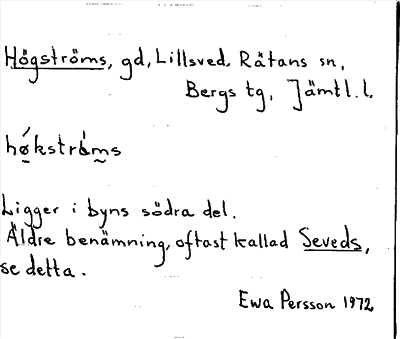 Högströms, gd, Lillsved, Rätans sn,
Bergs tg, Jämtl. l.
Ligger i byns södra del.
Äldre benämning, oftast kallad Seveds,
se detta.
Ewa Persson 1972